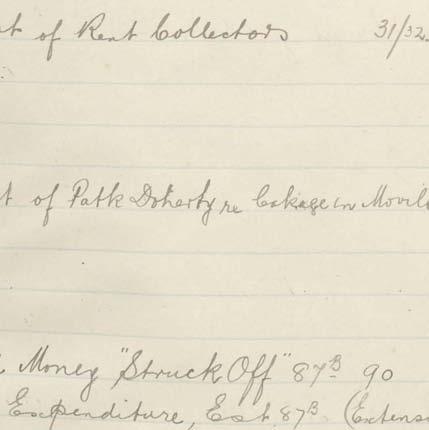 of Rent Collectors 31/32
of Patk Doherty re Leakage in Movil
Money "Struck Off" 87B 90
Expenditure, Est. 87B (Extens